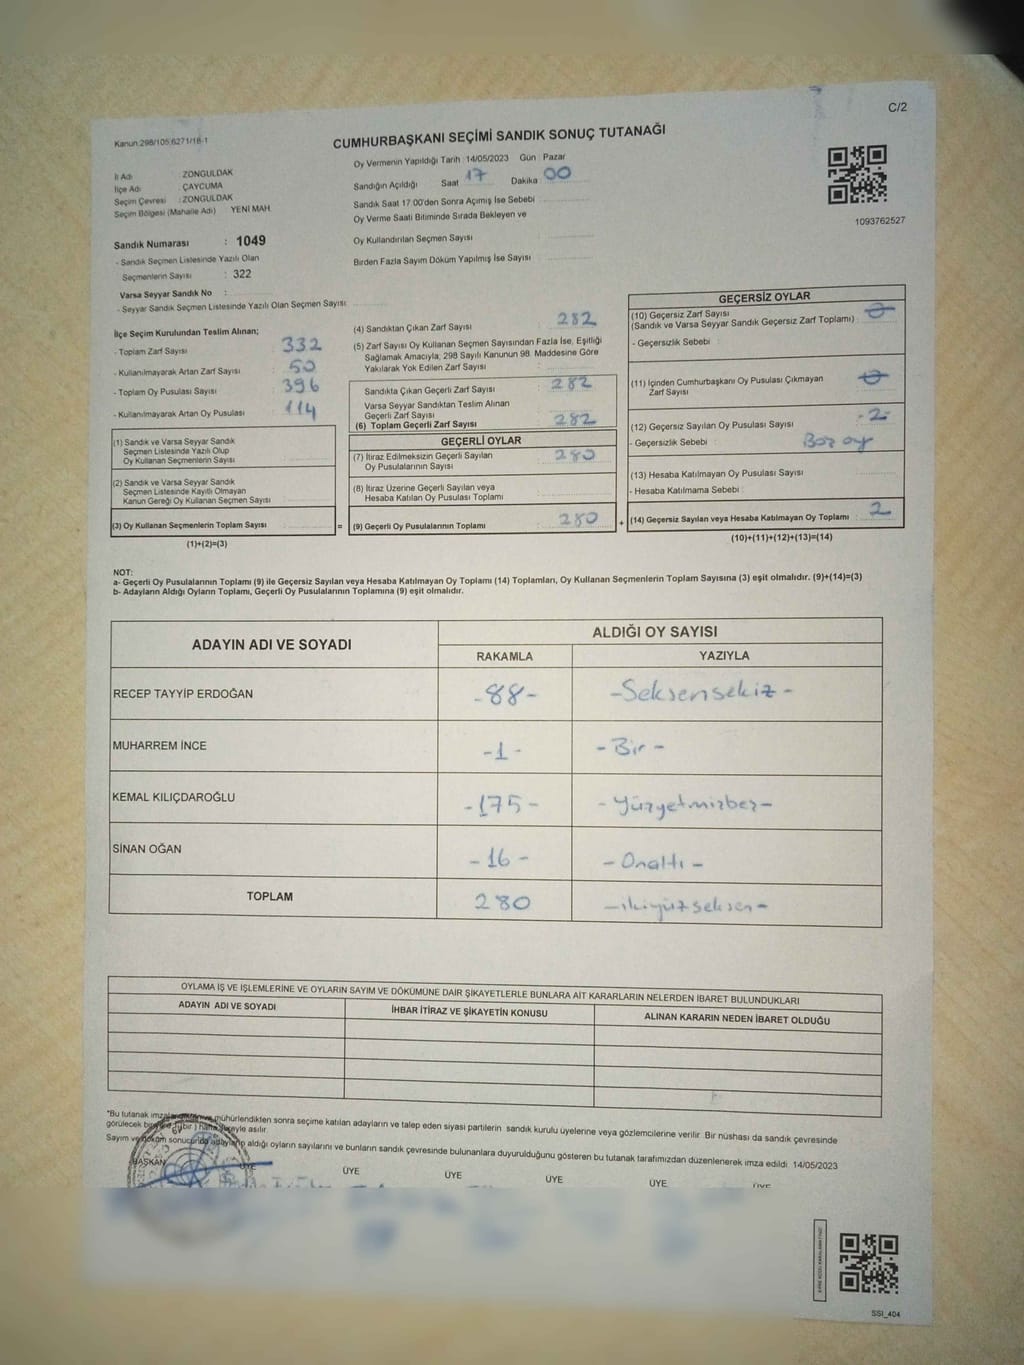 C/2
Kanun:298/105,6271/18-1
CUMHURBAŞKANI SEÇİMİ SANDIK SONUÇ TUTANAĞI
İl Adı : ZONGULDAK
İlçe Adı : ÇAYCUMA
Seçim Çevresi : ZONGULDAK
Seçim Bölgesi (Mahalle Adı) YENİ MAH.
Oy Vermenin Yapıldığı Tarih 14/05/2023 Gün Pazar
Sandığın Açıldığı Saat 17 Dakika 00
Sandık Saat 17.00'den Sonra Açımış İse Sebebi
Oy Verme Saati Bitiminde Sırada Bekleyen ve
Oy Kullandırılan Seçmen Sayısı :
Birden Fazla Sayım Döküm Yapılmış İse Sayısı
1093762527
Sandık Numarası : 1049
- Sandık Seçmen Listesinde Yazılı Olan
Seçmenlerin Sayısı : 322
Varsa Seyyar Sandık No :
- Seyyar Sandık Seçmen Listesinde Yazılı Olan Seçmen Sayısı:
İlçe Seçim Kurulundan Teslim Alınan;
- Toplam Zarf Sayısı : 332
- Kullanılmayarak Artan Zarf Sayısı : 50
- Toplam Oy Pusulası Sayısı : 396
- Kullanılmayarak Artan Oy Pusulası : 114
(1) Sandık ve Varsa Seyyar Sandık
Seçmen Listesinde Yazılı Olup
Oy Kullanan Seçmenlerin Sayısı :
(2) Sandık ve Varsa Seyyar Sandık
Seçmen Listesinde Kayıtlı Olmayan
Kanun Gereği Oy Kullanan Seçmen Sayısı :
(3) Oy Kullanan Seçmenlerin Toplam Sayısı :
(1)+(2)=(3)
(4) Sandıktan Çıkan Zarf Sayısı : 282
(5) Zarf Sayısı Oy Kullanan Seçmen Sayısından Fazla İse, Eşitliği
Sağlamak Amacıyla; 298 Sayılı Kanunun 98. Maddesine Göre
Yakılarak Yok Edilen Zarf Sayısı :
Sandıkta Çıkan Geçerli Zarf Sayısı : 282
Varsa Seyyar Sandıktan Teslim Alınan
Geçerli Zarf Sayısı :
(6) Toplam Geçerli Zarf Sayısı : 282
GEÇERLİ OYLAR
(7) İtiraz Edilmeksizin Geçerli Sayılan
Oy Pusulalarının Sayısı : 280
(8) İtiraz Üzerine Geçerli Sayılan veya
Hesaba Katılan Oy Pusulası Toplamı :
= (9) Geçerli Oy Pusulalarının Toplamı : 280 +
GEÇERSİZ OYLAR
(10) Geçersiz Zarf Sayısı
(Sandık ve Varsa Seyyar Sandık Geçersiz Zarf Toplamı) : 0
- Geçersizlik Sebebi :
(11) İçinden Cumhurbaşkanı Oy Pusulası Çıkmayan
Zarf Sayısı : 0
(12) Geçersiz Sayılan Oy Pusulası Sayısı : -2-
- Geçersizlik Sebebi : Boz oy
(13) Hesaba Katılmayan Oy Pusulası Sayısı :
- Hesaba Katılmama Sebebi :
(14) Geçersiz Sayılan veya Hesaba Katılmayan Oy Toplamı : 2
(10)+(11)+(12)+(13)=(14)
NOT:
a- Geçerli Oy Pusulalarının Toplamı (9) ile Geçersiz Sayılan veya Hesaba Katılmayan Oy Toplamı (14) Toplamları, Oy Kullanan Seçmenlerin Toplam Sayısına (3) eşit olmalıdır. (9)+(14)=(3)
b- Adayların Aldığı Oyların Toplamı, Geçerli Oy Pusulalarının Toplamına (9) eşit olmalıdır.
ADAYIN ADI VE SOYADI ALDIĞI OY SAYISI
RAKAMLA YAZIYLA
RECEP TAYYİP ERDOĞAN -88- -Seksensekiz-
MUHARREM İNCE -1- -Bir-
KEMAL KILIÇDAROĞLU -175- -Yüzyetmizbeş-
SİNAN OĞAN -16- -Onaltı-
TOPLAM 280 -ikiyüzseksen-
OYLAMA İŞ VE İŞLEMLERİNE VE OYLARIN SAYIM VE DÖKÜMÜNE DAİR ŞİKAYETLERLE BUNLARA AİT KARARLARIN NELERDEN İBARET BULUNDUKLARI
ADAYIN ADI VE SOYADI İHBAR İTİRAZ VE ŞİKAYETİN KONUSU ALINAN KARARIN NEDEN İBARET OLDUĞU
*Bu tutanak mühürlendikten sonra seçime katılan adayların ve talep eden siyasi partilerin sandık kurulu üyelerine veya gözlemcilerine verilir. Bir nüshası da sandık çevresinde
görülecek bir yere asılır.
Sayım ve döküm sonucunda adayların aldığı oyların sayılarını ve bunların sandık çevresinde bulunanlara duyurulduğunu gösteren bu tutanak tarafımızdan düzenlenerek imza edildi. 14/05/2023
BAŞKAN ÜYE ÜYE ÜYE ÜYE ÜYE ÜYE
SSI_404